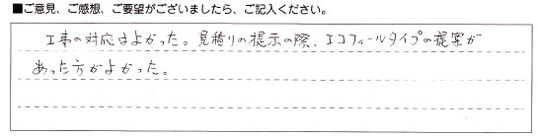 ■ご意見、ご感想、ご要望がございましたら、ご記入ください。
工事の対応はよかった。見積りの提示の際、エコフィールタイプの提案が
あった方がよかった。